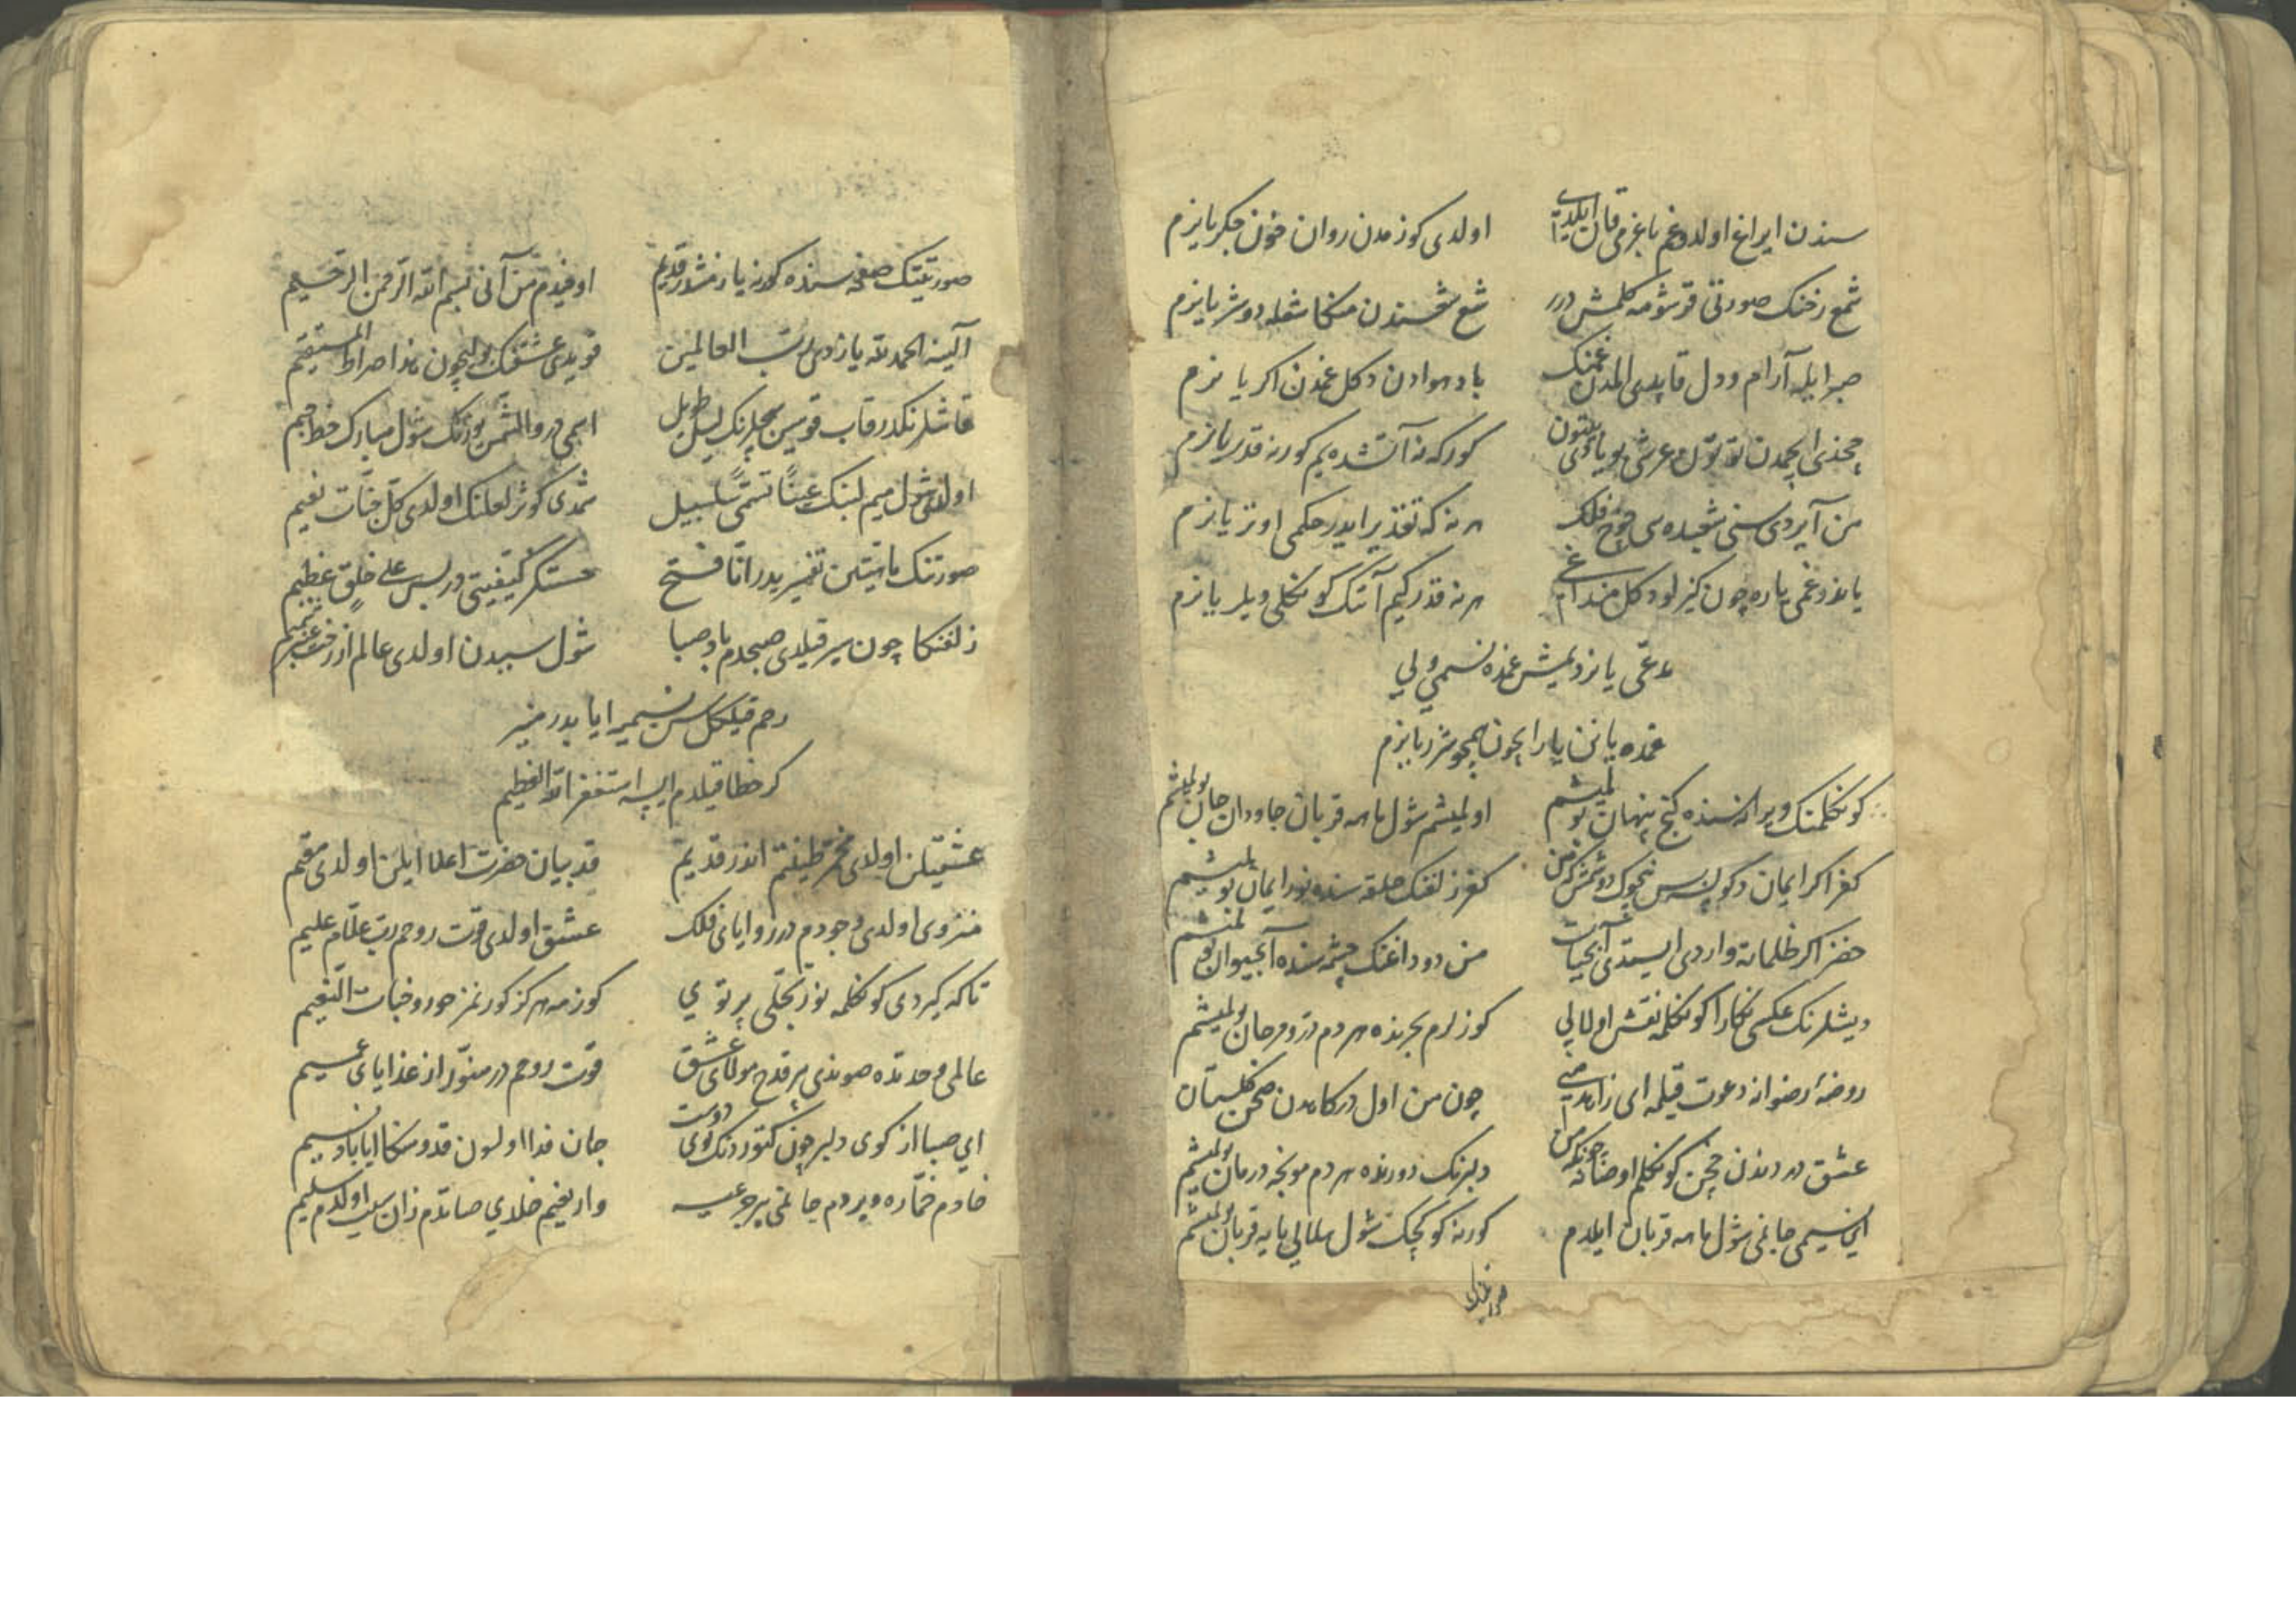 سندن ایراغ اولدوغم باغرمی قان ایلدی اولدی کوزمدن روان خون جکر یانرم
شمع رخنک صورتی قرشومه کلمش درر شمع شعسندن منکا شعله دوشر یانرم
صبر ایله آرام و دل قاپدی المدن غمنک باد هوادن دکل غمدن اکر یانرم
چخدی ایچمدن توتون عرشی بویادی کورکه نه آتشده یم کورنه قدر یانرم
من آیردی سنی شعبده سی چرخ فلک هر نه که تقدیر ایدر حکمی اونر یانرم
یاندوغمی یاره چون کیزلو دکل هر نه قدر کیم آنک کونکلی دیلر یانرم
مدعی یانردیمش غمده نسیمی ولی
غمده یانن یار ایچون خوشدر یانرم
کونکلمنک ویرانه سنده کنج پنهان بولمیشم اولمیشم شول ماهه قربان جاودان جان بولمیشم
کفر اکر ایمان دکولسه نجوک دوشمش کفر زلفنک حلقه سنده نور ایمان بولمیشم
خضر اکر ظلماته واردی ایستدی آبحیات من دوداغنک چشمه سنده آبحیوان بولمیشم
دیشلرنک عکسی نکارا کونکلمه نقش اولالی کوزلرم بحرنده هر دم در و مرجان بولمیشم
روضهٔ رضوانه دعوت قیلمه ای زاهد منی چون من اول درکاهدن صحن کلستان
عشق دردندن چخن کونکلم اوصانمه دلبرنک دورنده هر دم مونجه درمان بولمیشم
ای نسیمی جانمی شول ماهه قربان ایلدم کورنه کوکچک شول هلالی یایه قربان بولمیشم
صورتینک صفحه سنده کورنه یازمشدر قدیم اوقیدم من آنی بسم الله الرحمن الرحیم
آلینه الحمدلله یازدی رب العالمین قویدی عشقنک یولیچون هذا صراط المستقیم
قاشلرنکدر قاب قوسین صچلرنک لیل طویل اسمی در والشمس یوزنک شول مبارک خط جیم
اولدی شول میم لبنک عینا تسمی سلسبیل شمدی کوثر لعلنک اولدی کل جنات نعیم
صورتنک ماهیتین تفسیر یدر انا فتح کیفیتی در بس علی خلق عظیم
زلفنکا چون سیر قیلدی صبحدم باد صبا شول سببدن اولدی عالم از رخت عنبر شمیم
رحم قیلکل سن نسیمیه ایا بدر منیر
کر خطا قیلدم ایسه استغفر الله العظیم
عشقیلن اولدی مخمر طینتم اندر قدیم قدبیان حضرت اعلا ایلن اولدی مقیم
منزوی اولدی وجودم در زوایای فلک عشق اولدی قوت روحم رب علام علیم
تاکه کیردی کونکلمه نور تجلی پرتوی کوزمه هرکز کورنمز حور و جنات النعیم
عالمی وحدتده صوندی بر قدح مولای عشق قوت روحم در منور از غذایای عمیم
ای صبا از کوی دلبر چون کتوردنک بوی دوست جان فدا اولسون قدومنکا ایا باد نسیم
خادم خماره ویردم جانمی بر جرعیه واریغیم خلدی صاتدم زان سبب اولدم سلیم